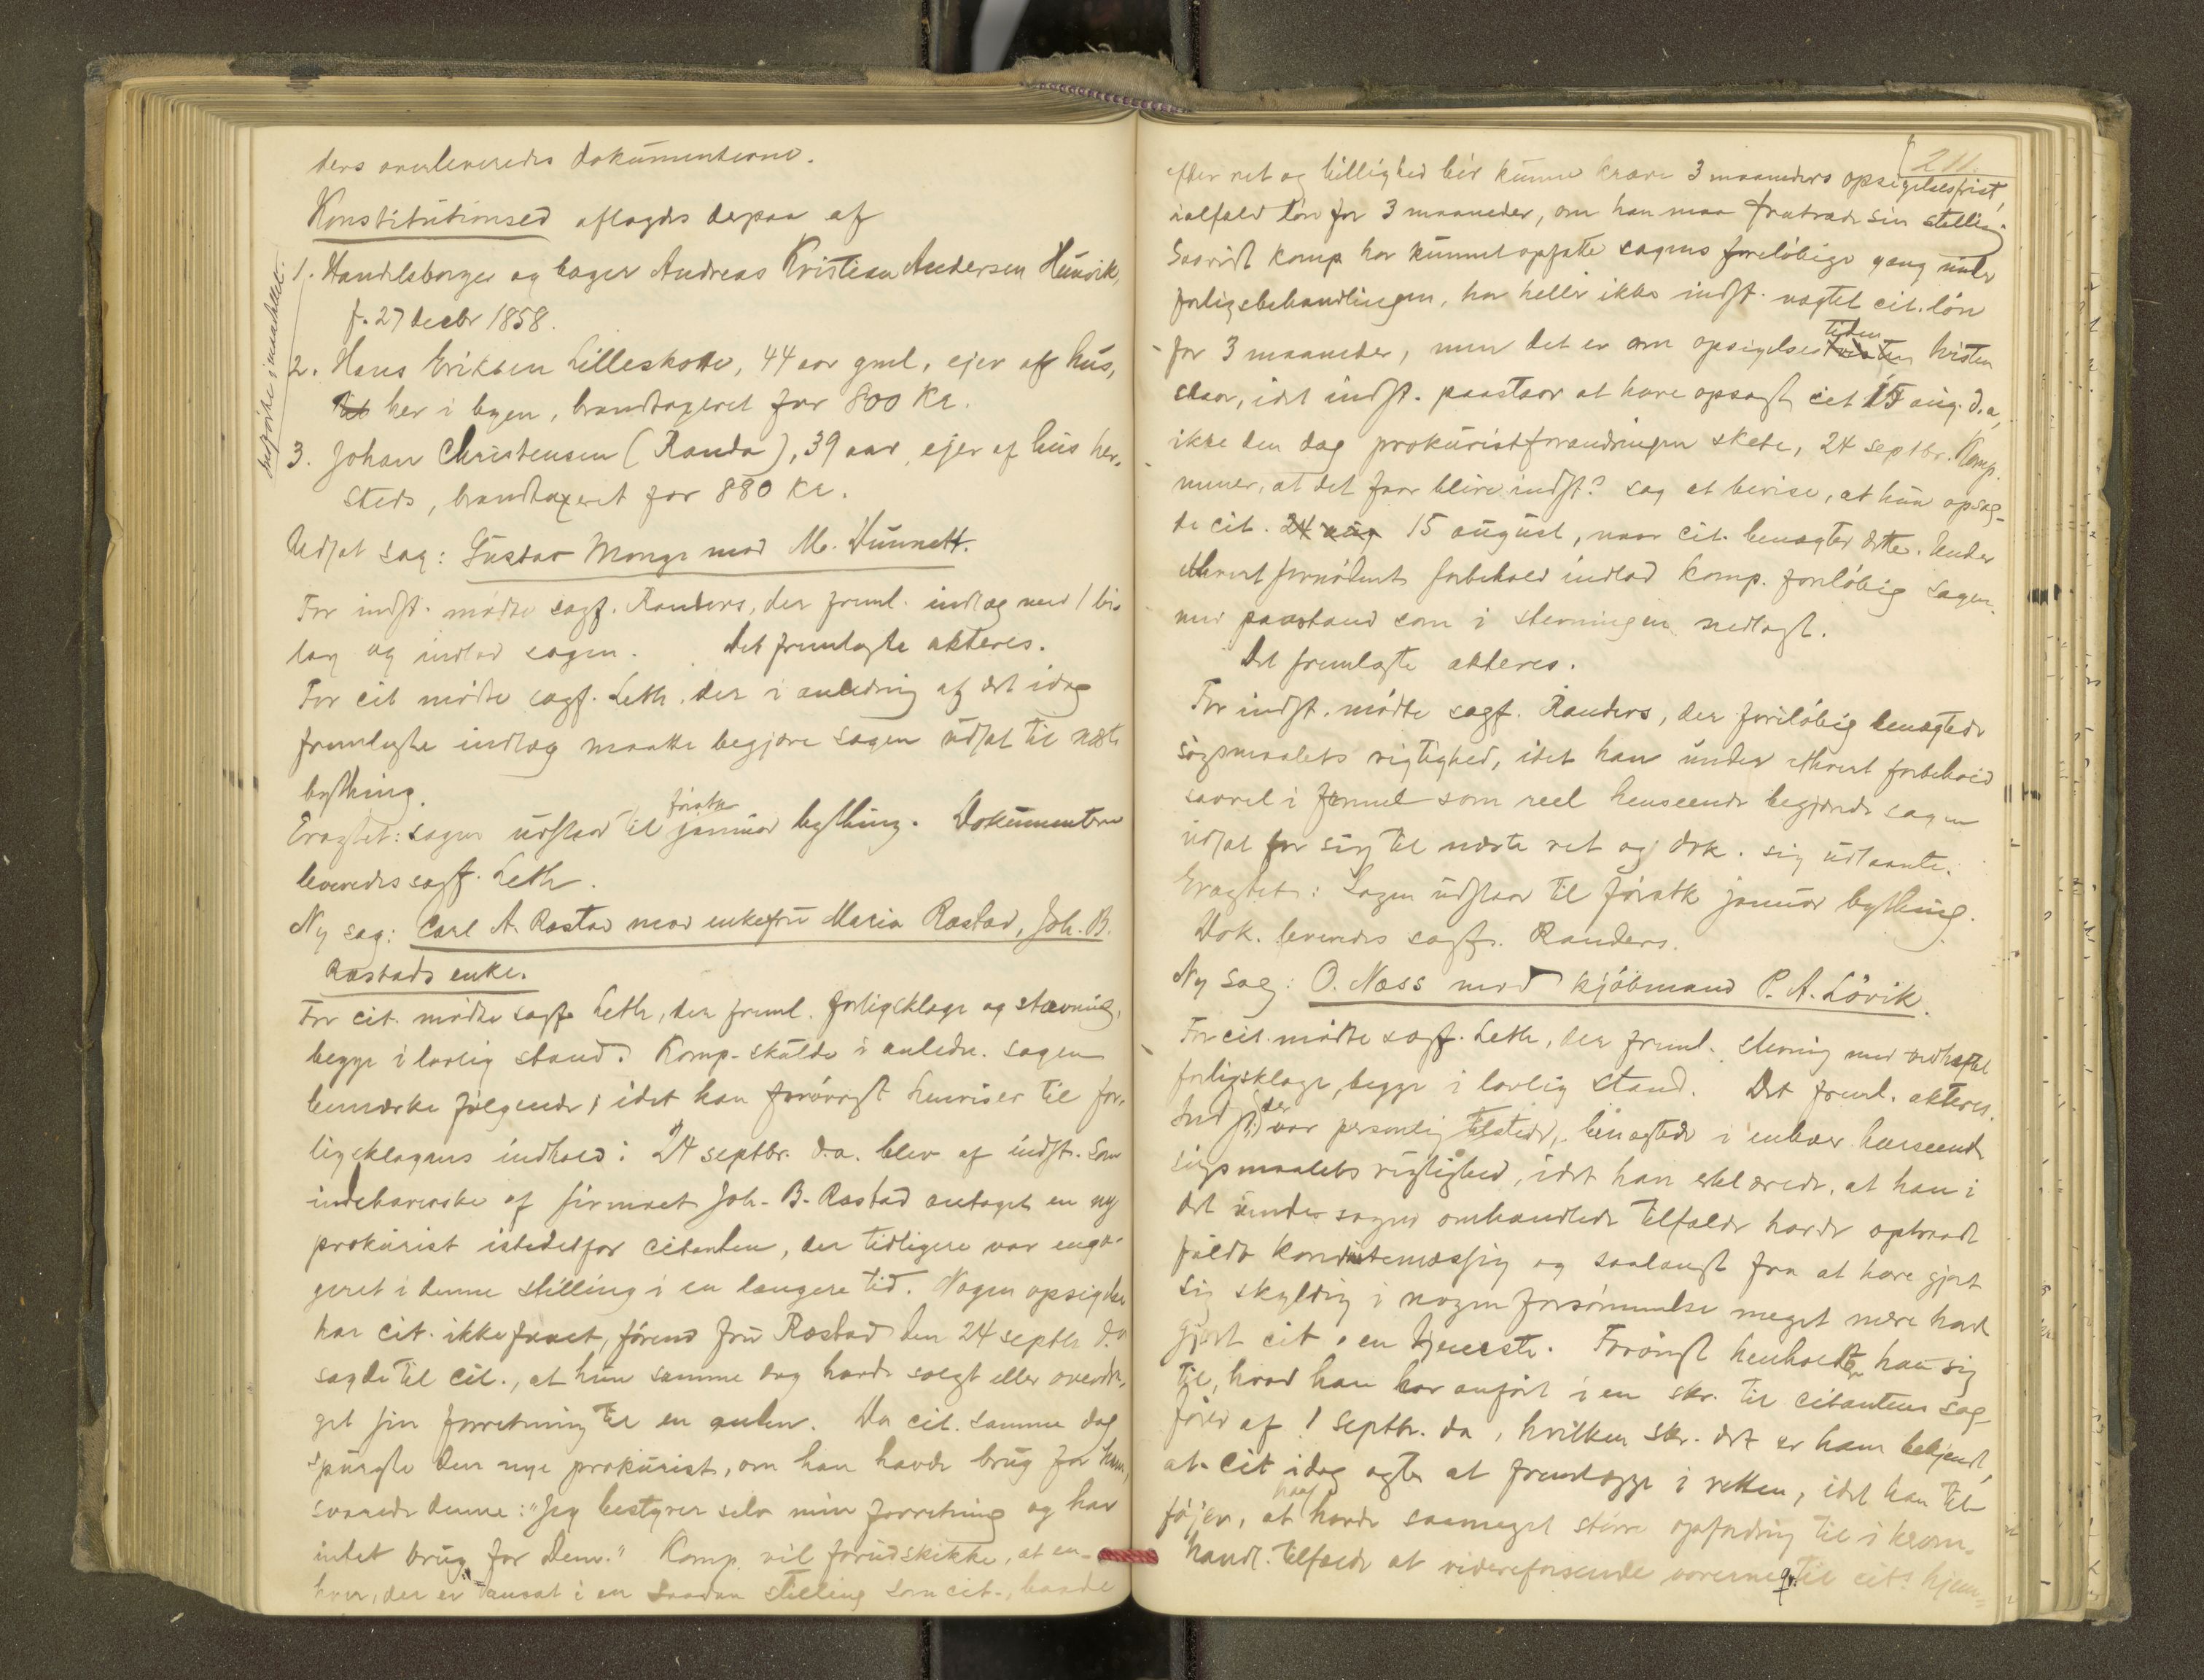 ders overleveredes dokumenterne.
Konstitutionsed aflagdes derpaa af
1. Handelsborger og bager Andreas Kristian Andersen Husvik,
f. 27 decbr 1858.
2. Hans Eriksen Lilleskotte, 44 aar gml., ejer af hus,
her i byen, brandtaxeret for 800 Kr.
3. Johan Christensen (Randa), 39 aar, ejer af hus her-
steds, brandtaxeret for 880 kr.
Udsat sag: Gustav Monge mod M. Dunnett.
For indst. mødte sagf. Randers, der freml. indlæg med 1 bi-
lag og indlod sagen. Det fremlagte akteres.
For cit mødte sagf. Leth, der i anledning af det idag
fremlagte indlæg maatte begjære sagen udsat til næste
bything.
Eragtet: sagen udstaar til første januar bything. Dokumenterne
leveredes sagf. Leth.
Ny sag: Carl A. Rastad mod enkefru Maria Rastad, Joh. B.
Rastads enke.
For cit. mødte sagf. Leth, der freml. forligsklage og stævning,
begge i lovlig stand. Komp. skulde i anledn. sagen
bemærke følgende, idet han forøvrigt henviser til for-
ligsklagens indhold: 24 septbr. d.a. blev af indst. som
indehaverske af firmaet Joh. B. Rastad antaget en ny
prokurist istedetfor citanten, der tidligere var enga-
geret i denne stilling i en længere tid. Nogen opsigelse
har cit. ikke faaet, førend fru Rastad den 24 septbr d.a.
sagde til cit., at hun samme dag havde solgt eller overdra-
get sin forretning til en anden. Da cit. samme dag
spurgte den nye prokurist, om han havde brug for ham,
svarede denne: "Jeg bestyrer selv min forretning og har
intet brug for Dem." Komp. vil forudskikke, at en-
hver, der er ansat i en saadan stilling som cit., baade
211.
efter ret og billighed bør kunne kræve 3 maaneders opsigelsesfrist,
ialfald løn for 3 maaneder, om han maa fratræde sin stilling
Saavidt komp har kunnet opfatte sagens foreløbige gang under
forligsbehandlingen, har heller ikke indst. nægtet cit. løn
for 3 maaneder, men det er om opsigelsestiden tvisten
staar, idet indst. paastaar at have opsagt cit 15 aug. d.a,
ikke den dag prokuristforandringen skete, 24 septbr. Komp.
mener, at det faar blive indst.s sag at bevise, at hun opsag-
de cit. 24 aug 15 august, naar cit. benægter dette. Under
ethvert fornødent forbehold indlod komp. foreløbig sagen
med paastand som i stevningen nedlagt.
Det fremlagte akteres.
For indst. mødte sagf. Randers, der foreløbig benægtede
søgsmaalets rigtighed, idet han under ethvert forbehold
saavel i formel som reel henseende begjærede sagen
udsat for sig til næste ret og dok. sig udlaante.
Eragtet: Sagen udstaar til første januar bything.
Dok. leveredes sagf. Randers.
Ny sag: O. Næss mod kjøbmand P. A. Løvik.
For cit. mødte sagf. Leth, der freml. stevning med vedhæftet
forligsklage, begge i lovlig stand. Det freml. akteres.
Indst., der var personlig tilstede, benægtede i enhver henseende
søgsmaalets rigtighed, idet han erklærede, at han i
det under sagen omhandlede tilfælde havde optraadt
fuldt kondutemæssig og saalangt fra at have gjort
sig skyldig i nogen forsømmelse meget mere havde
gjort cit. en tjeneste. Forøvrigt henholdte han sig
til, hvad han har anført i en skr. til citantens sag-
fører af 1 septbr. da, hvilken skr. det er ham bekjendt,
at cit idag agter at fremlægge i retten, idet han til-
føjer, at han havde saameget større opfordring til i krom-
handl. tilfælde at videreforsende varerne til cits hjem-